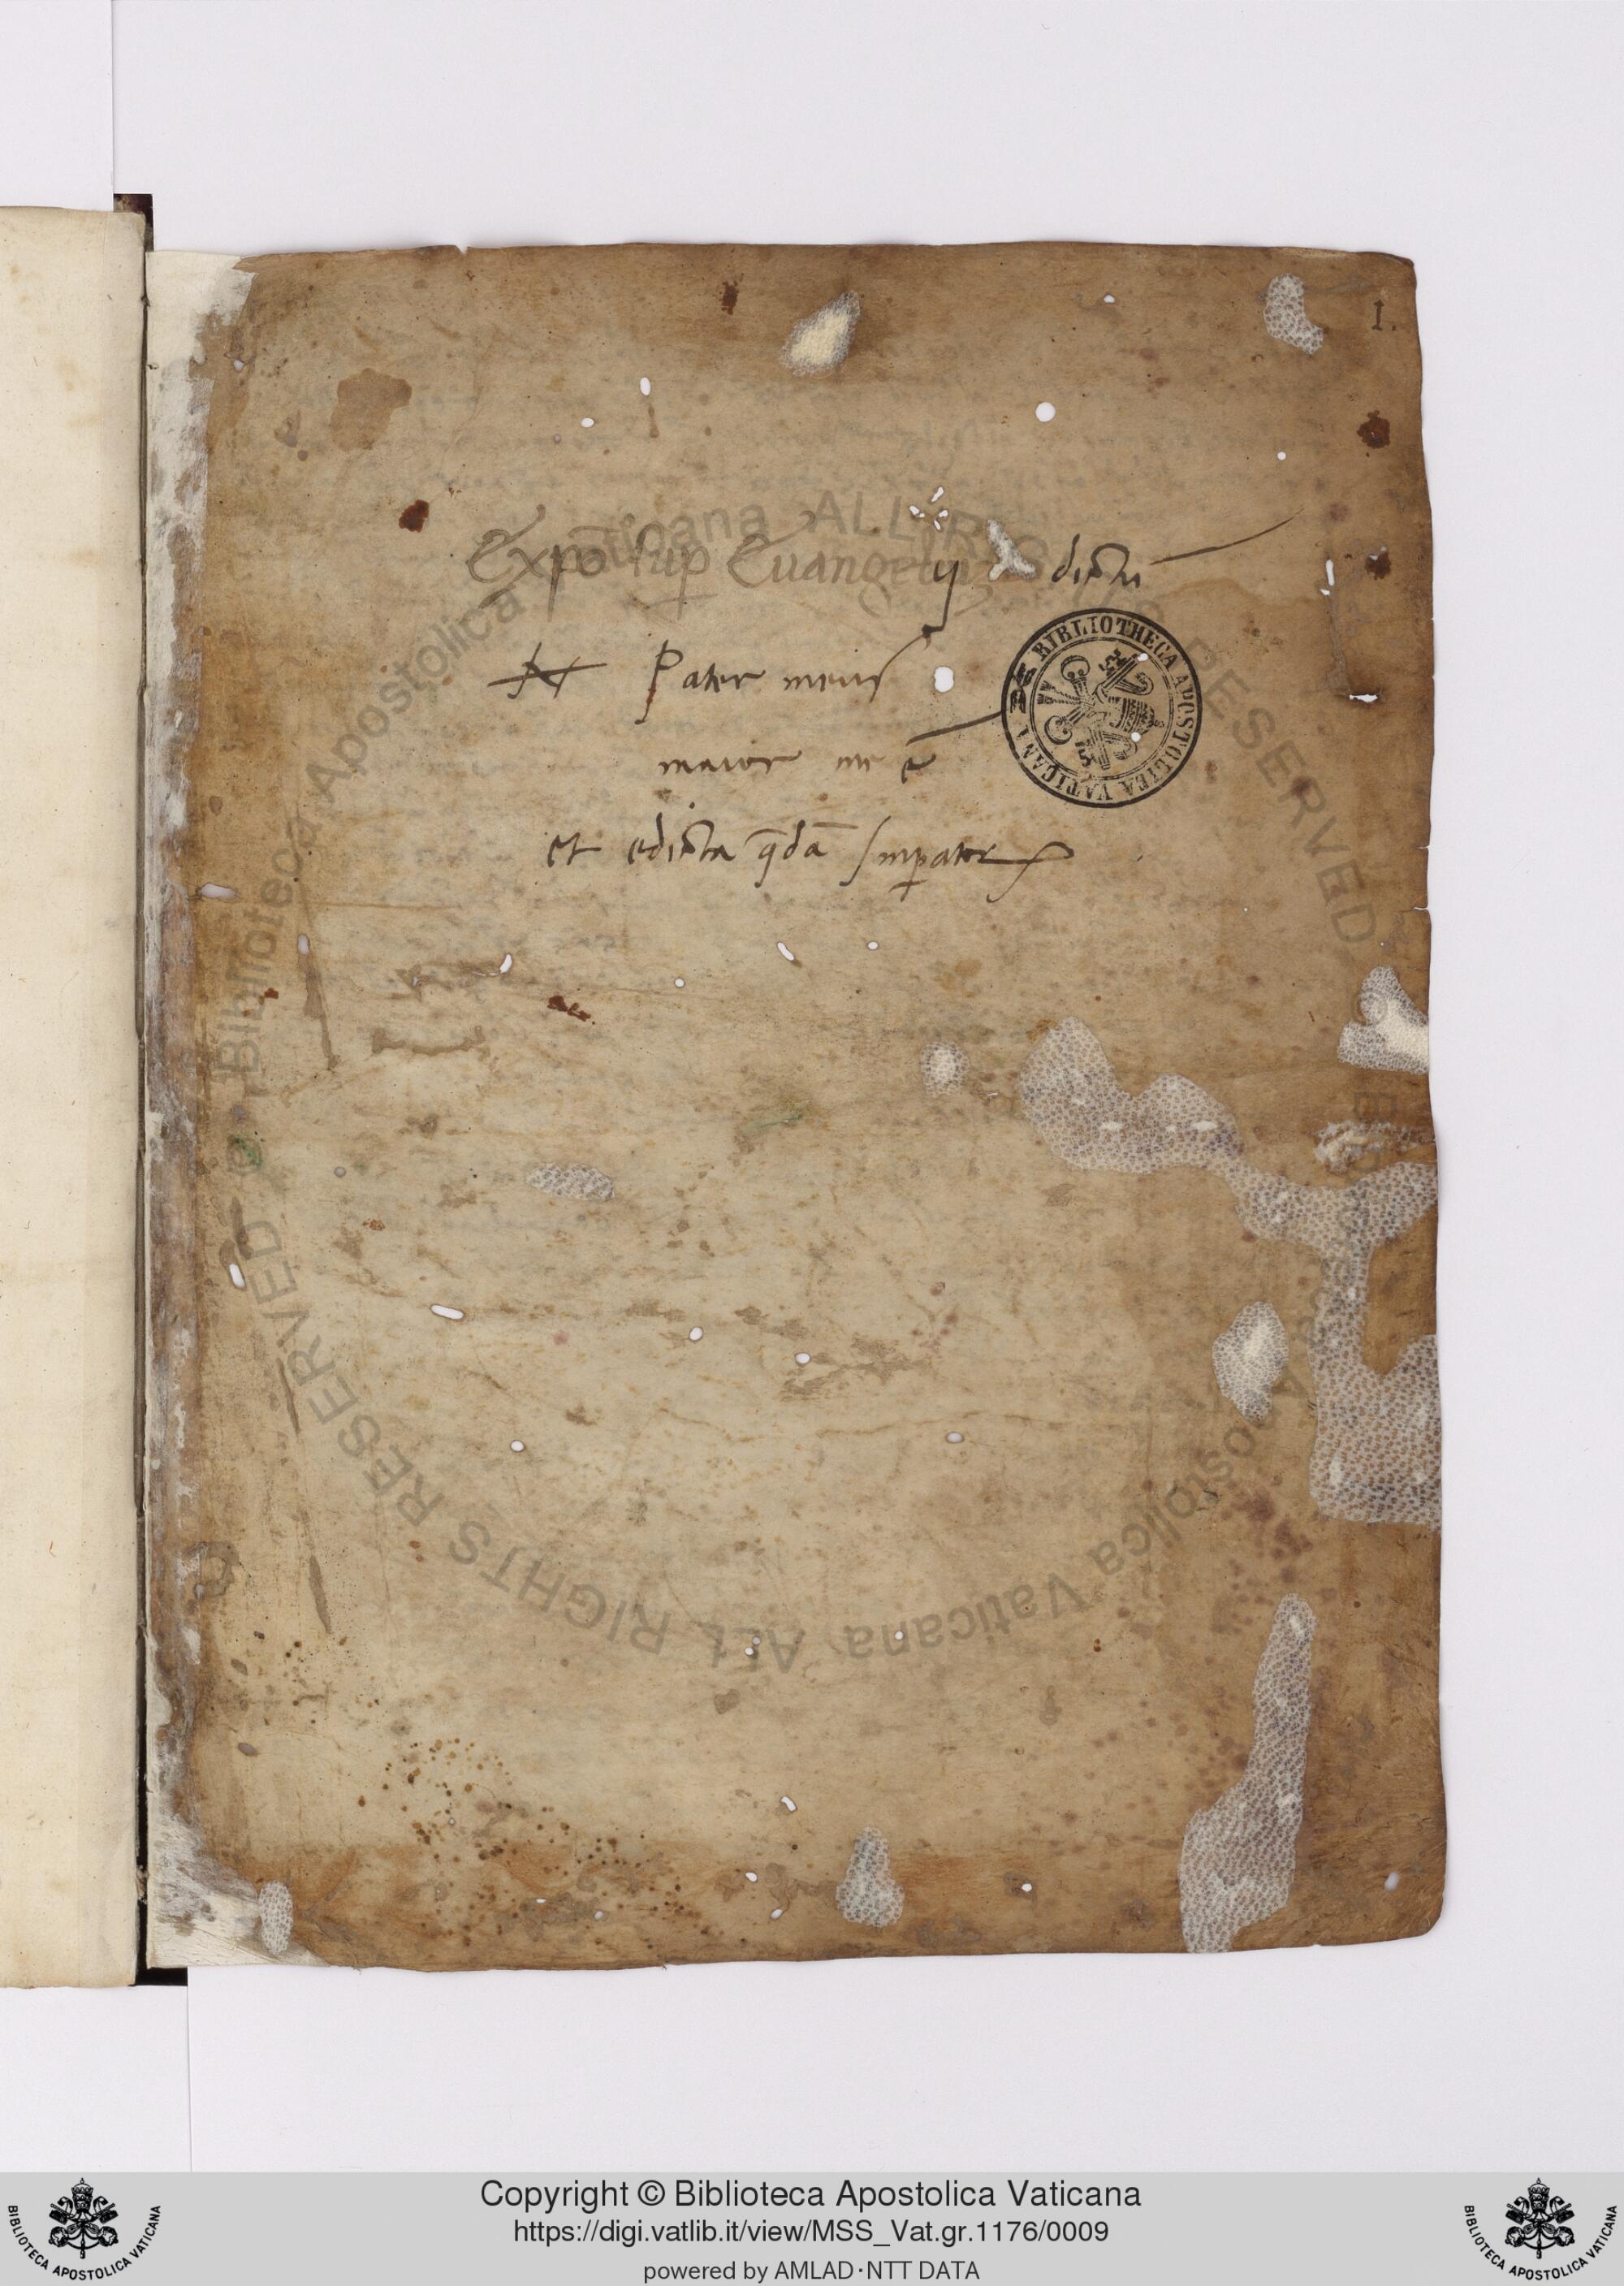 1.
Expõ sup Euangelij dictū
Pater meus
maior me ē
et edicta q̄dā Imperator
BIBLIOTHECA APOSTOLICA VATICANA
Biblioteca Apostolica Vaticana ALL RIGHTS RESERVED
Biblioteca Apostolica Vaticana ALL RIGHTS RESERVED
Copyright © Biblioteca Apostolica Vaticana
https://digi.vatlib.it/view/MSS_Vat.gr.1176/0009
powered by AMLAD·NTT DATA
BIBLIOTECA APOSTOLICA VATICANA
BIBLIOTECA APOSTOLICA VATICANA